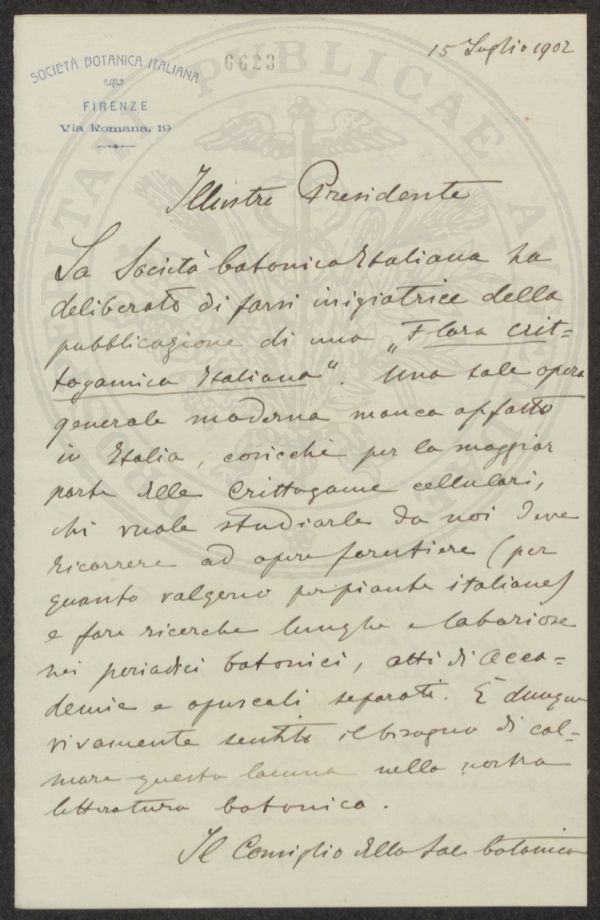 15 Luglio 1902
6623
SOCIETÀ BOTANICA ITALIANA
FIRENZE
Via Romana, 19
Illustre Presidente
La Società botanica Italiana ha
deliberato di farsi iniziatrice della
pubblicazione di una „Flora crit-
togamica Italiana“. Una tale opera
generale moderna manca affatto
in Italia, cosicchè per la maggior
parte delle Crittogame cellulari,
chi vuole studiarle da noi deve
ricorrere ad opere forestiere (per
quanto valgono per piante italiane)
e fare ricerche lunghe e laboriose
nei periodici botanici, atti di Acca-
demie e opuscoli separati. È dunque
vivamente sentito il bisogno di col-
mare questa lacuna nella nostra
letteratura botanica.
Il Consiglio della Soc. botanica